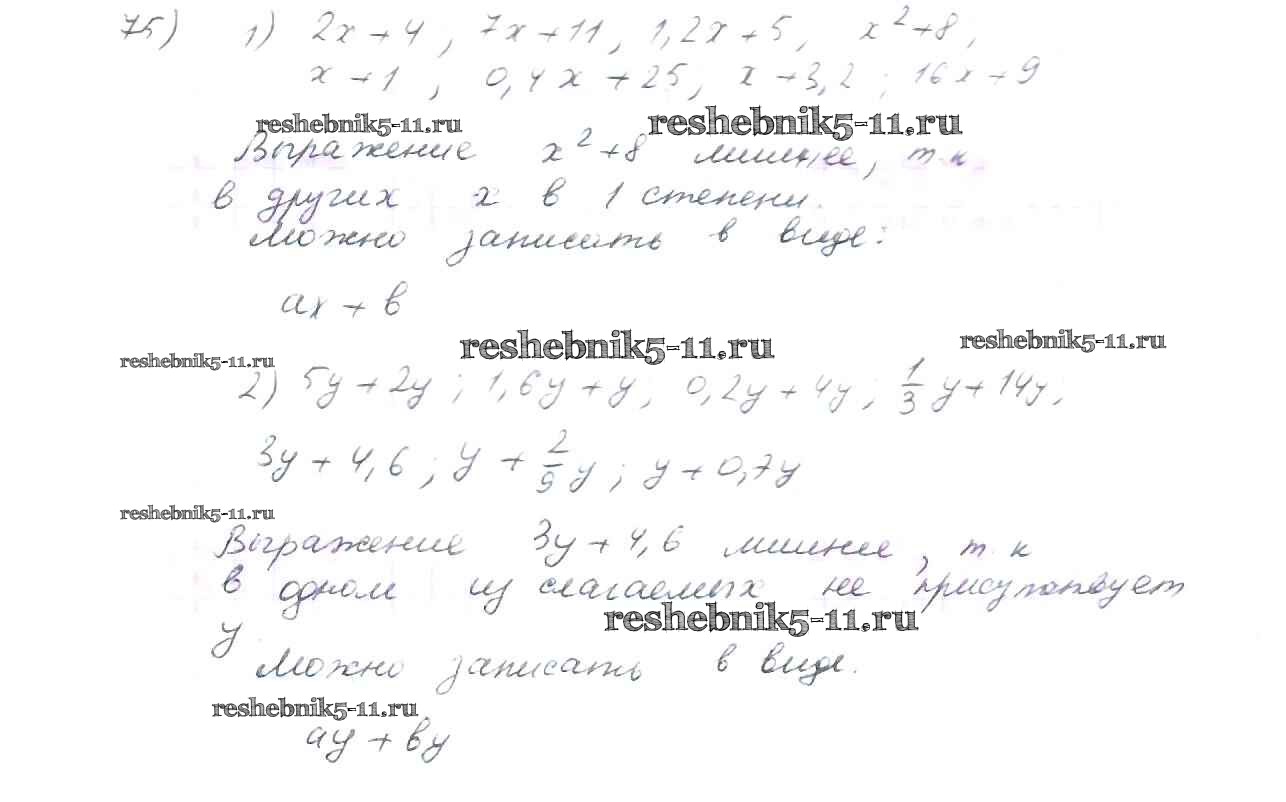 75) 1) 2x+4, 7x+11, 1,2x+5, x²+8,
x+1, 0,4x+25, x+3,2; 16x+9
reshebnik5-11.ru reshebnik5-11.ru
Выражение x²+8 лишнее, т.к
в других x в 1 степени.
Можно записать в виде:
ax+в
reshebnik5-11.ru reshebnik5-11.ru reshebnik5-11.ru
2) 5y+2y; 1,6y+y; 0,2y+4y; 1/3 y+14y;
3y+4,6; y+2/9 y; y+0,7y
reshebnik5-11.ru
Выражение 3y+4,6 лишнее, т.к
в одном из слагаемых не присутствует
reshebnik5-11.ru
y
Можно записать в виде.
reshebnik5-11.ru
ay+вy